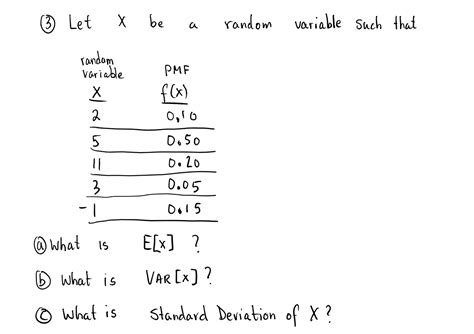 ③ Let X be a random variable such that
random variable X PMF f(x)
2 0.10
5 0.50
11 0.20
3 0.05
-1 0.15
ⓐ What is E[x] ?
ⓑ What is VAR[x] ?
ⓒ What is Standard Deviation of X ?